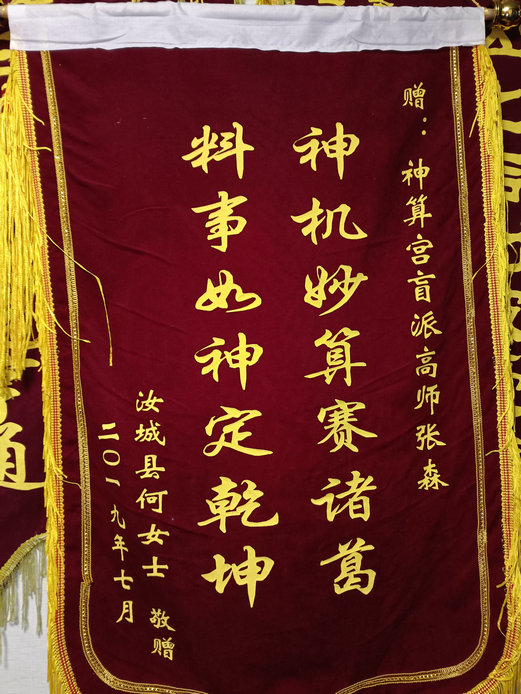 赠：神算宫盲派高师张森
神机妙算赛诸葛
料事如神定乾坤
汝城县何女士 敬赠
二〇一九年七月
通